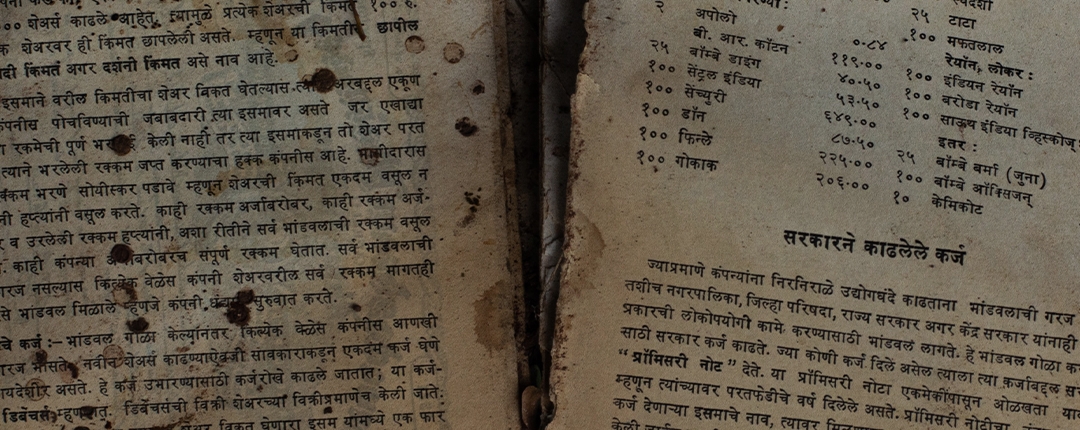 ०० शेअर्स काढले आहेत. त्यामुळे प्रत्येक शेअरची किंमत १०० रु.
क शेअरवर ही किंमत छापलेली असते. म्हणून या किमतीस छापील
किंमत अगर दर्शनी किंमत असे नाव आहे.
इसमाने वरील किमतीचा शेअर विकत घेतल्यास एकूण
पोचविण्याची जबाबदारी त्या इसमावर असते जर एखाद्या
रकमेची पूर्ण केली नाही तर त्या इसमाकडून तो शेअर परत
त्याने भरलेली रक्कम जप्त करण्याचा हक्क कंपनीस आहे.
भरणे सोयीस्कर पडावे म्हणून शेअरची किंमत एकदम वसूल न
हप्त्यांनी वसूल करते. काही रक्कम अर्जाबरोबर, काही रक्कम अर्ज-
व उरलेली रक्कम हप्त्यांनी, अशा रीतीने सर्व भांडवलाची रक्कम वसूल
काही कंपन्या संपूर्ण रक्कम घेतात. सर्व भांडवलाची
गरज नसल्यास कित्येक वेळेस कंपनी शेअरवरील सर्व रक्कम मागतही
भांडवल मिळाले म्हणजे कंपनी सुरुवात करते.
चे कर्ज :– भांडवल गोळा केल्यानंतर कित्येक वेळेस कंपनीस आणखी
नवीन शेअर्स काढण्याऐवजी सावकाराकडून एकदम कर्ज घेणे
असते. हे कर्ज उभारण्यासाठी कर्जरोखे काढले जातात; या कर्ज-
डिबेंचर्स म्हणतात. डिबेंचर्सची विक्री शेअरच्या विक्रीप्रमाणेच केली जाते.
विकत घेणारा इसम यांमध्ये एक फार
२ अपोलो
बी. आर. कॉटन ०.८४
२५ बॉम्बे डाइंग ११९.००
१०० सेंट्रल इंडिया ४०.५०
१०० सेंच्युरी ५३.५०
१०० डॉन ६४९.००
१०० फिन्ले ८७.५०
१०० गोकाक २२५.००
२०६.००
२५ टाटा
१०० मफतलाल
रेयॉन, लोकर :
१०० इंडियन रेयॉन
१०० बरोडा रेयॉन
१०० साऊथ इंडिया व्हिस्कोज
इतर :
२५ बॉम्बे बर्मा (जुना)
१०० बॉम्बे ऑक्सिजन्
१० केमिकोट
सरकारने काढलेले कर्ज
ज्याप्रमाणे कंपन्यांना निरनिराळे उद्योगधंदे काढताना भांडवलाची गरज
तशीच नगरपालिका, जिल्हा परिषदा, राज्य सरकार अगर केंद्र सरकार यांनाही
प्रकारची लोकोपयोगी कामे करण्यासाठी भांडवल लागते. हे भांडवल गोळा
साठी सरकार कर्ज काढते. ज्या कोणी कर्ज दिले असेल त्याला त्या कर्जाबद्दल
“ प्रॉमिसरी नोट ” देते. या प्रॉमिसरी नोटा एकमेकींपासून ओळखता
म्हणून त्यांच्यावर परतफेडीचे वर्ष दिलेले असते. प्रॉमिसरी नोटीचा
कर्ज देणाऱ्या इसमाचे नाव, त्यावर